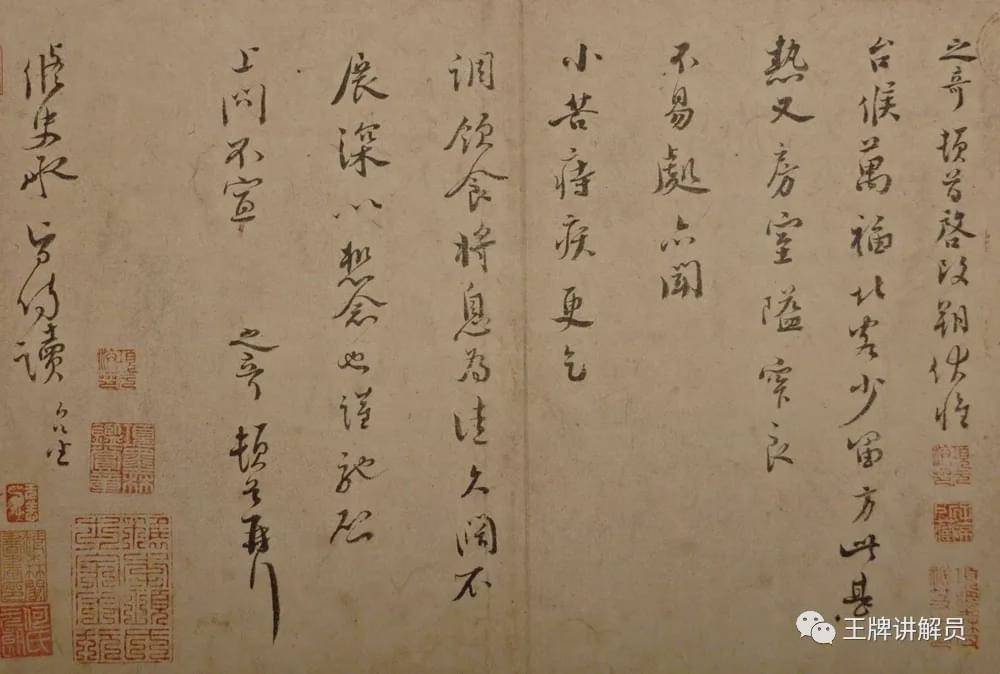 之奇頓首啓改朔伏惟
台候萬福北客少留方此甚
熱又房室隘窄良
不易處亦聞
小苦痔疾更乞
調飲食將息為佳久闊不
展深以想念也謹馳啓
上問不宣 之奇頓首再拜
脩史承旨侍讀 台坐
王牌讲解员